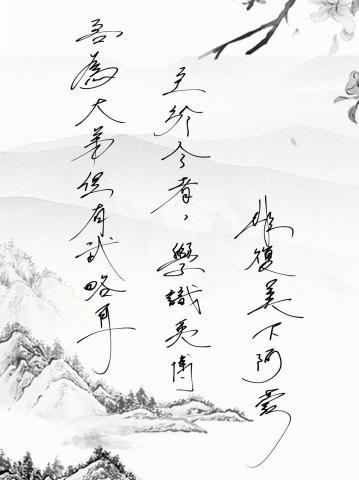 吾為大弟但有武略耳
至於今者，學識英博
非復吳下阿蒙